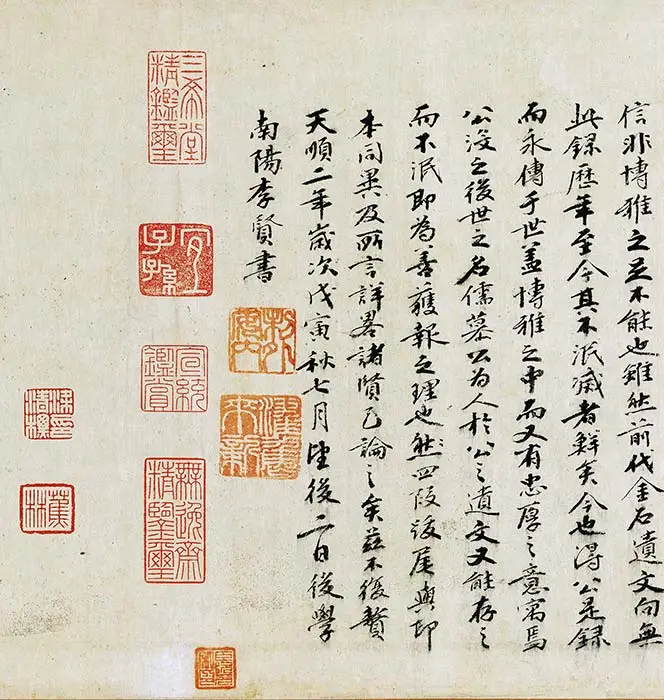 信非博雅之足不能也雖然前代金石遺文向無
此錄歷年至今其不泯滅者鮮矣今也得公是錄
而永傳于世蓋博雅之中而又有忠厚之意寓焉
公沒之後世之名儒慕公為人於公之遺文又能存之
而不泯即為善獲報之理也然四段跋尾與印
本同異及所言詳畧諸賢已論之矣茲不復贅
天順二年歲次戊寅秋七月望後二日後學
南陽李賢書
三希堂精鑑璽
宜子孫
宣統鑑賞
無逸齋精鑒璽
蕉林